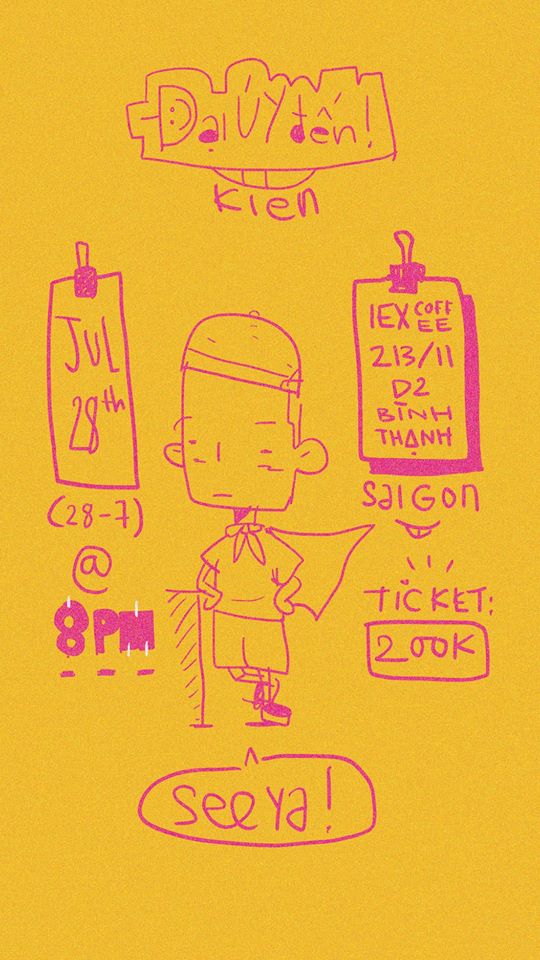 Đại ÚY đến!
Kien
JUL
28th
(28-7)
@
8PM
1EX COFFEE
213/11
D2
BÌNH
THẠNH
SAIGON
TICKET:
200K
see ya!